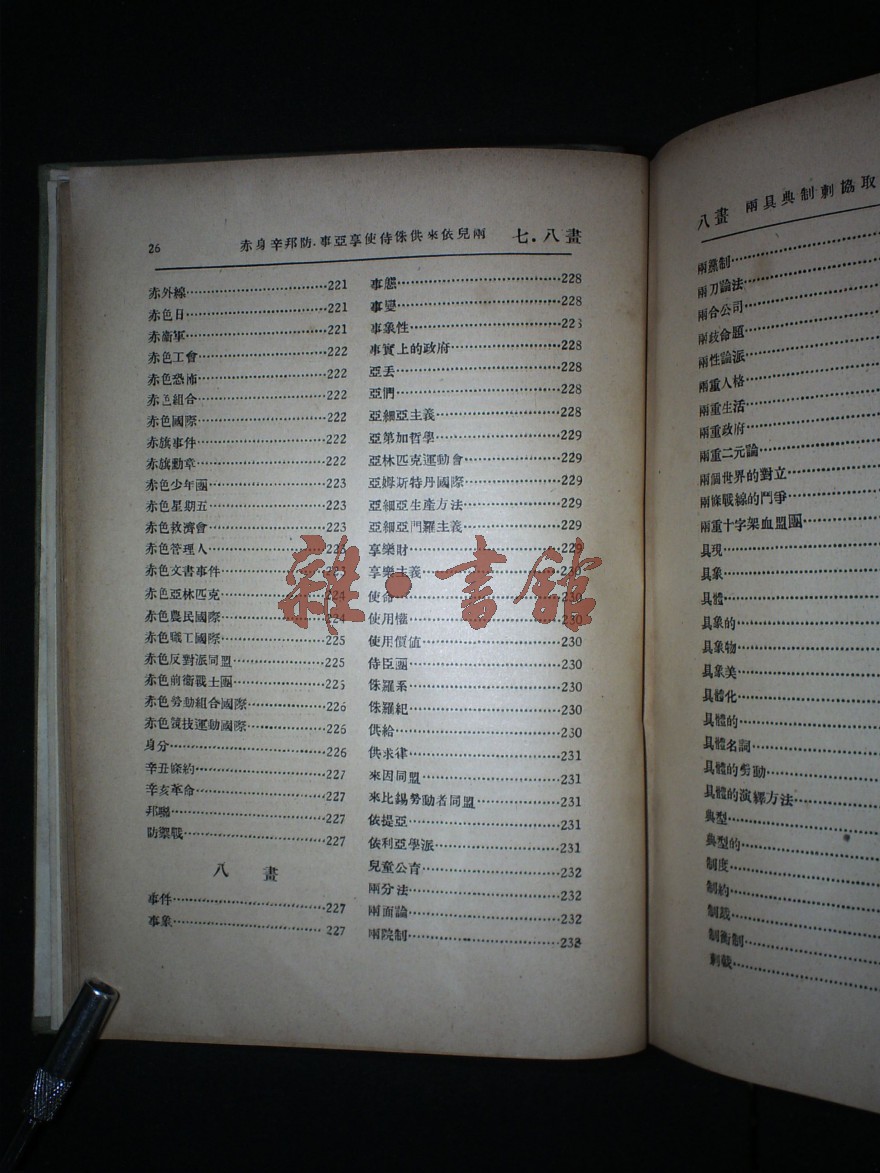 26
赤身辛邦防.事亞享使侍侏供來依兒兩 七.八畫
赤外線…………221
赤色日…………221
赤衞軍…………221
赤色工會…………222
赤色恐怖…………222
赤色組合…………222
赤色國際…………222
赤旗事件…………222
赤旗勳章…………222
赤色少年團…………223
赤色星期五…………223
赤色救濟會…………223
赤色管理人…………223
赤色文書事件…………223
赤色亞林匹克…………224
赤色農民國際…………224
赤色職工國際…………225
赤色反對派同盟…………225
赤色前衞戰士團…………225
赤色勞動組合國際…………226
赤色競技運動國際…………226
身分…………226
辛丑條約…………227
辛亥革命…………227
邦聯…………227
防禦戰…………227
八 畫
事件…………227
事象…………227
事態…………228
事變…………228
事象性…………228
事實上的政府…………228
亞丢…………228
亞們…………228
亞細亞主義…………228
亞第加哲學…………229
亞林匹克運動會…………229
亞姆斯特丹國際…………229
亞細亞生產方法…………229
亞細亞門羅主義…………229
享樂財…………229
享樂主義…………230
使命…………230
使用權…………230
使用價值…………230
侍臣團…………230
侏羅系…………230
侏羅紀…………230
供給…………230
供求律…………231
來因同盟…………231
來比錫勞動者同盟…………231
依提亞…………231
依利亞學派…………231
兒童公育…………232
兩分法…………232
兩面論…………232
兩院制…………233
八畫 兩具典制刺協取
兩黨制…………
兩刀論法…………
兩合公司…………
兩歧命題…………
兩性論派…………
兩重人格…………
兩重生活…………
兩重政府…………
兩重二元論…………
兩個世界的對立…………
兩條戰線的鬥爭…………
兩重十字架血盟團…………
具現…………
具象…………
具體…………
具象的…………
具象物…………
具象美…………
具體化…………
具體的…………
具體名詞…………
具體的勞動…………
具體的演繹方法…………
典型…………
典型的…………
制度…………
制約…………
制裁…………
制衡制…………
刺戟…………
雜·書館